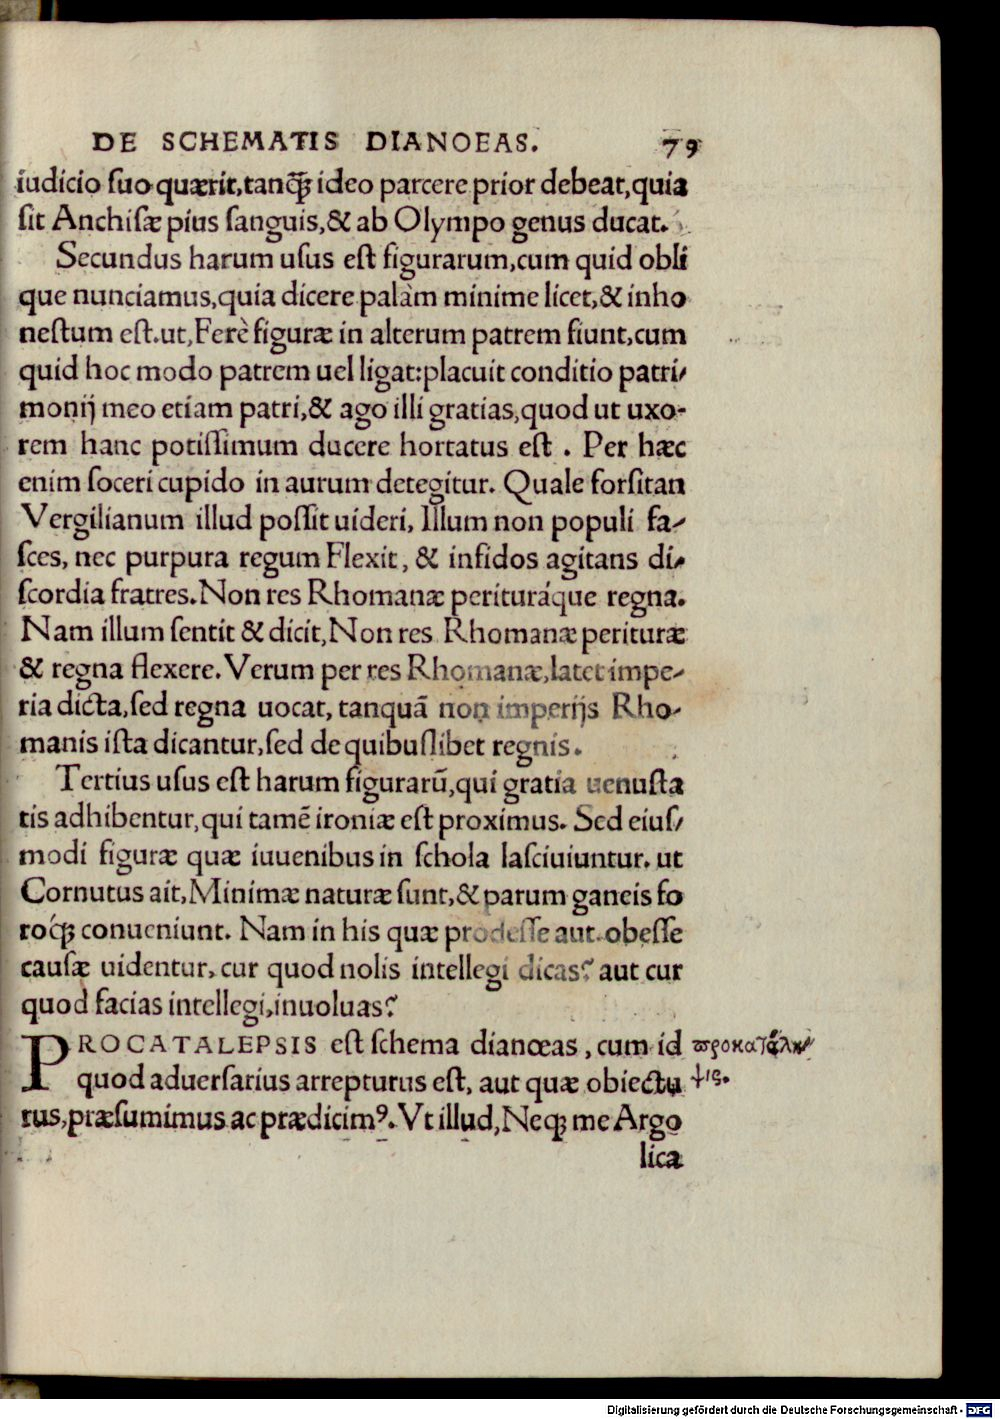 DE SCHEMATIS DIANOEAS. 79
iudicio suo quærit, tanq́ꝫ ideo parcere prior debeat, quia
sit Anchisæ pius sanguis, & ab Olympo genus ducat.
Secundus harum usus est figurarum, cum quid obli
que nunciamus, quia dicere palàm minime licet, & inho
nestum est. ut, Ferè figuræ in alterum patrem fiunt, cum
quid hoc modo patrem uel ligat: placuit conditio patri/
monij meo etiam patri, & ago illi gratias, quod ut uxo-
rem hanc potissimum ducere hortatus est. Per hæc
enim soceri cupido in aurum detegitur. Quale forsitan
Vergilianum illud possit uideri, Illum non populi fa-
sces, nec purpura regum Flexit, & infidos agitans di-
scordia fratres. Non res Rhomanæ perituráque regna.
Nam illum sentit & dicit, Non res Rhomanæ perituræ
& regna flexere. Verum per res Rhomanæ, latet impe-
ria dicta, sed regna uocat, tanquā non imperijs Rho-
manis ista dicantur, sed de quibuslibet regnis.
Tertius usus est harum figurarū, qui gratia uenusta
tis adhibentur, qui tamē ironiæ est proximus. Sed eius/
modi figuræ quæ iuuenibus in schola lasciuiuntur. ut
Cornutus ait, Minimæ naturæ sunt, & parum ganeis fo
roq́ꝫ conueniunt. Nam in his quæ prodesse aut obesse
causæ uidentur, cur quod nolis intellegi dicas? aut cur
quod facias intellegi, inuoluas?
PROCATALEPSIS est schema dianœas, cum id προκατάλη/
quod aduersarius arrepturus est, aut quæ obiectu ψις.
rus, præsumimus ac prædicimꝰ. Vt illud, Neqꝫ me Argo
lica
Digitalisierung gefördert durch die Deutsche Forschungsgemeinschaft - DFG